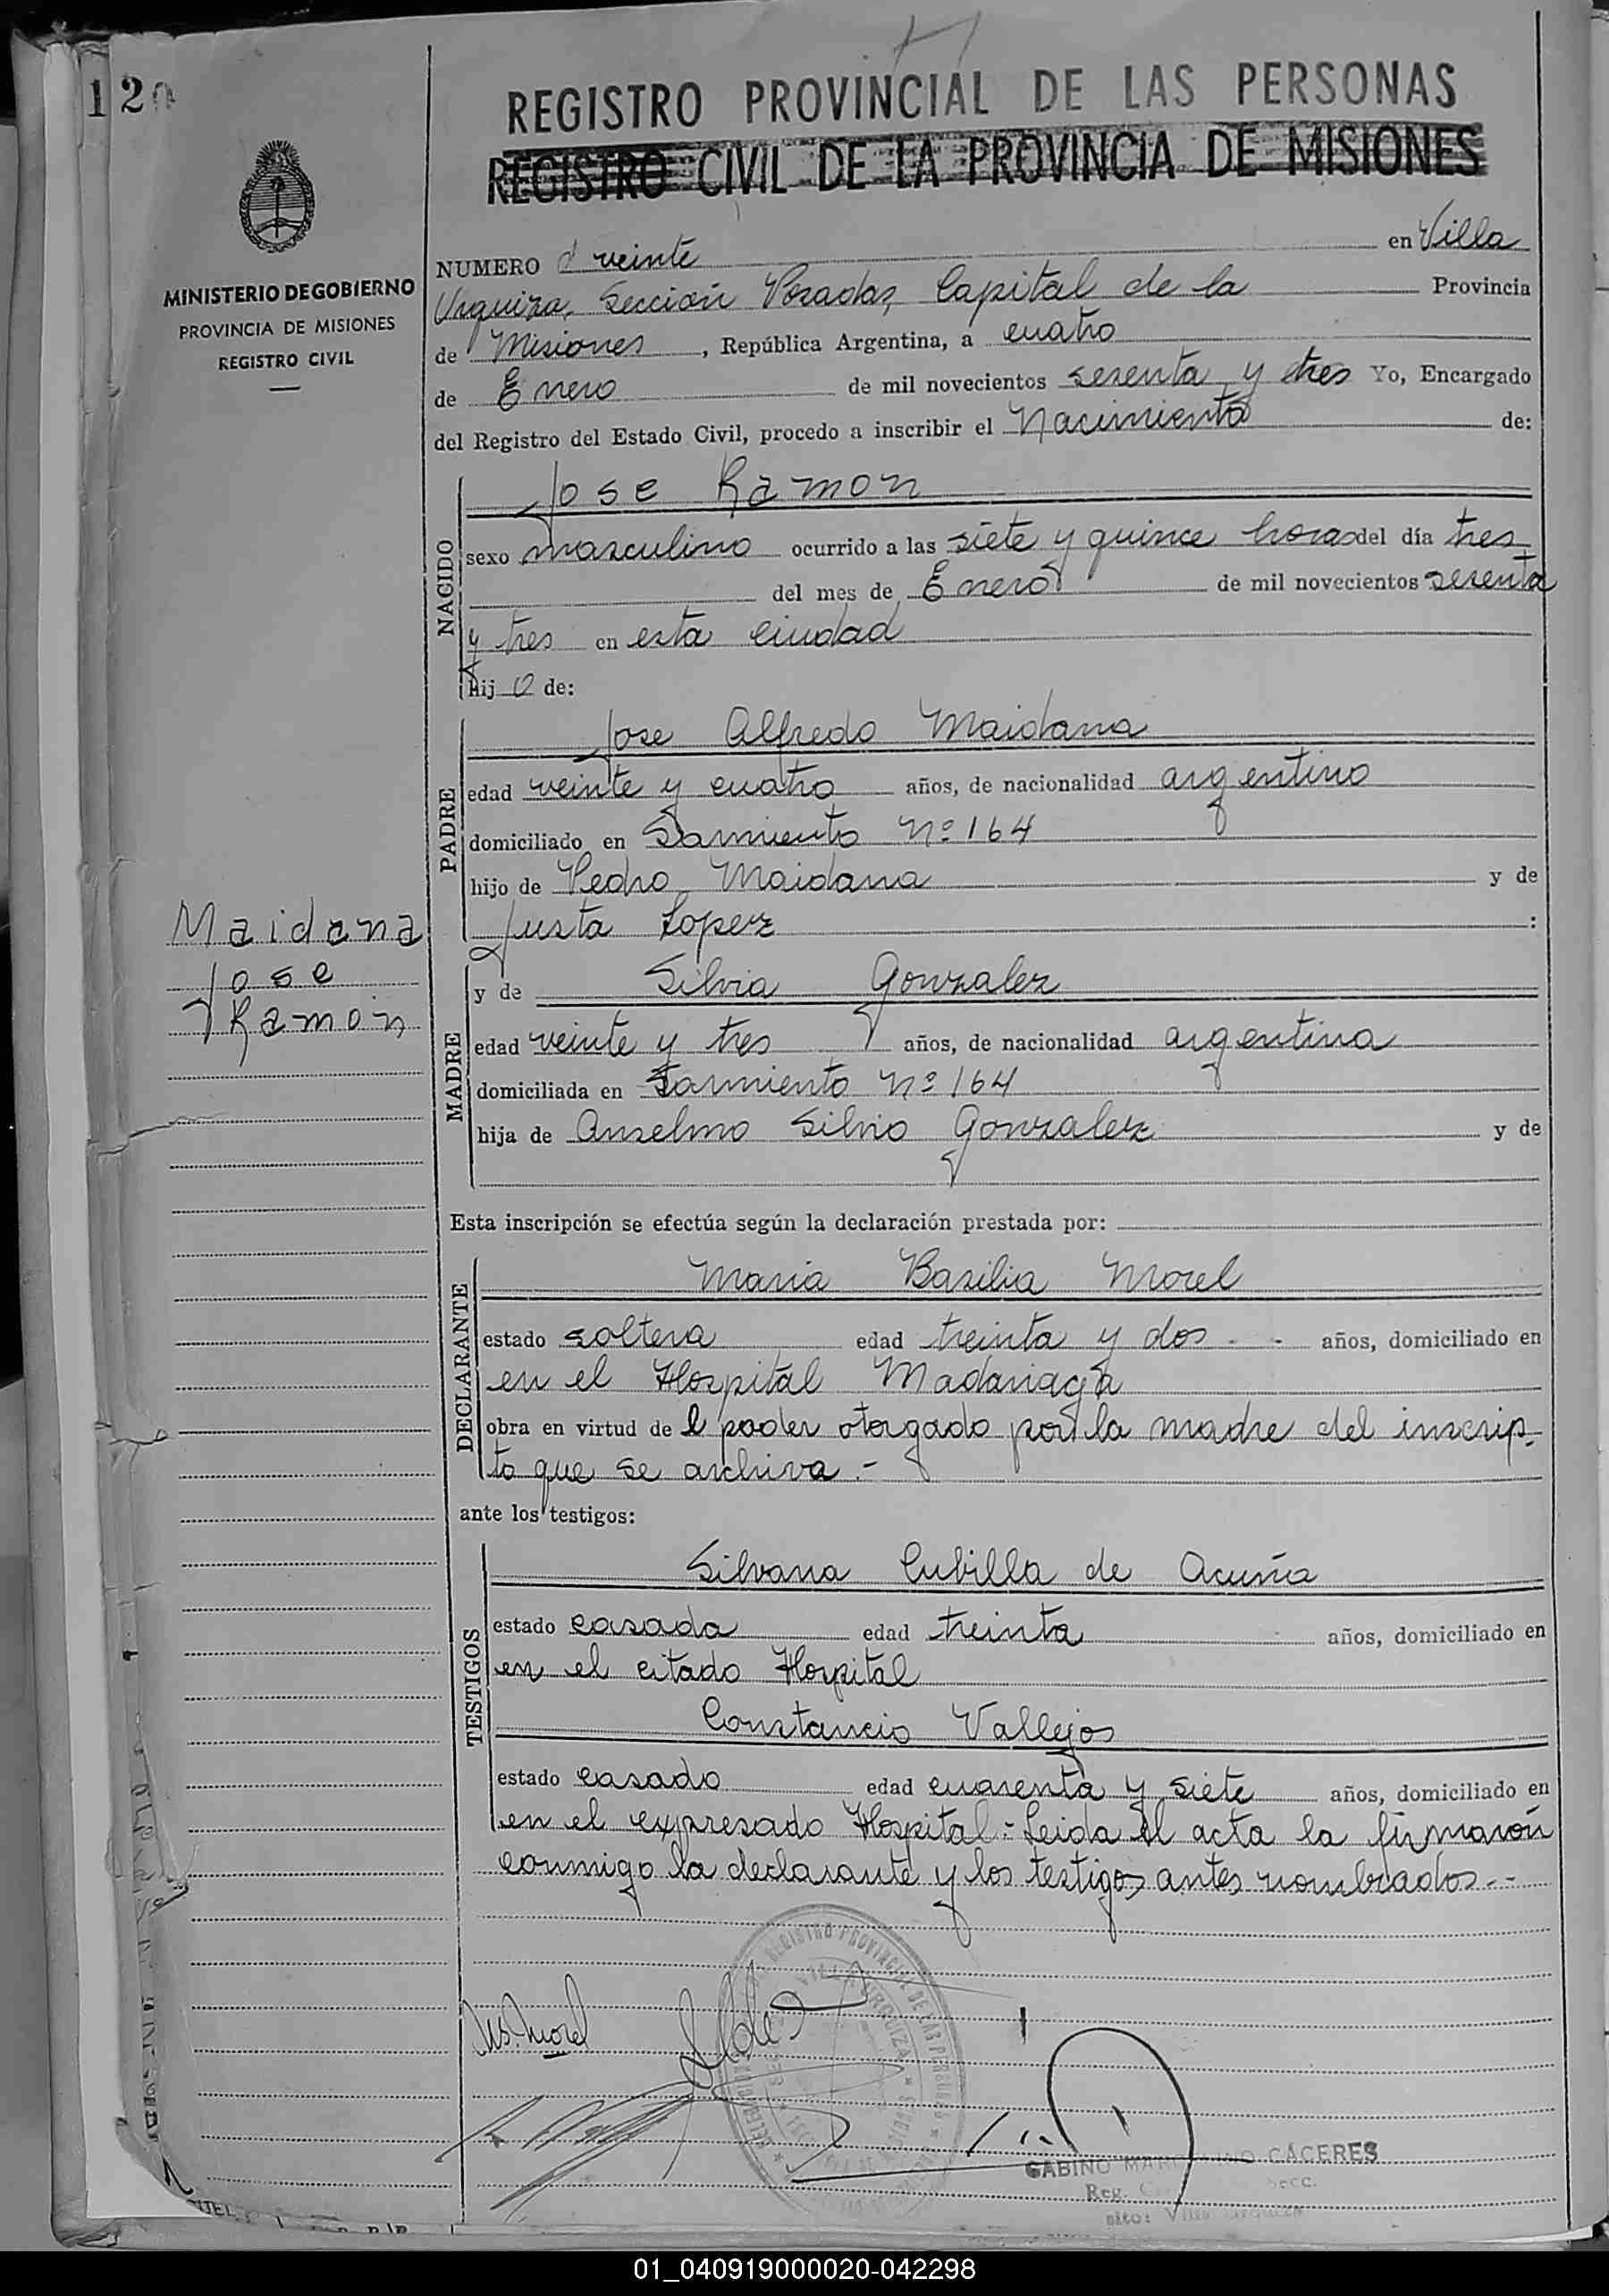 120
REGISTRO PROVINCIAL DE LAS PERSONAS
REGISTRO CIVIL DE LA PROVINCIA DE MISIONES
MINISTERIO DE GOBIERNO
PROVINCIA DE MISIONES
REGISTRO CIVIL
NUMERO veinte en Villa
Urquiza, Sección Posadas, Capital de la Provincia
de Misiones, República Argentina, a cuatro
de Enero de mil novecientos sesenta y tres Yo, Encargado
del Registro del Estado Civil, procedo a inscribir el Nacimiento de:
NACIDO
Jose Ramon
sexo masculino ocurrido a las siete y quince horas del día tres
del mes de Enero de mil novecientos sesenta
y tres en esta ciudad
hijo de:
PADRE
Jose Alfredo Maidana
edad veinte y cuatro años, de nacionalidad argentino
domiciliado en Sarmiento Nº 164
hijo de Pedro Maidana y de
Justa Lopez :
Maidana
Jose
Ramon
MADRE
y de Silvia Gonzalez
edad veinte y tres años, de nacionalidad argentina
domiciliada en Sarmiento Nº 164
hija de Anselmo Silvio Gonzalez y de
Esta inscripción se efectúa según la declaración prestada por:
DECLARANTE
Maria Basilia Morel
estado soltera edad treinta y dos - - años, domiciliado en
en el Hospital Madariaga
obra en virtud de l poder otorgado por la madre del inscrip-
to que se archiva.-
ante los testigos:
TESTIGOS
Silvana Cubilla de Acuña
estado casada edad treinta años, domiciliado en
en el citado Hospital
Constancio Vallejos
estado casado edad cuarenta y siete años, domiciliado en
en el expresado Hospital.- Leida el acta la firmaron
conmigo la declarante y los testigos antes nombrados.--
REGISTRO PROVINCIAL DE LAS PERSONAS
Morel
GABINO CACERES
Reg. Secc.
01_040919000020-042298